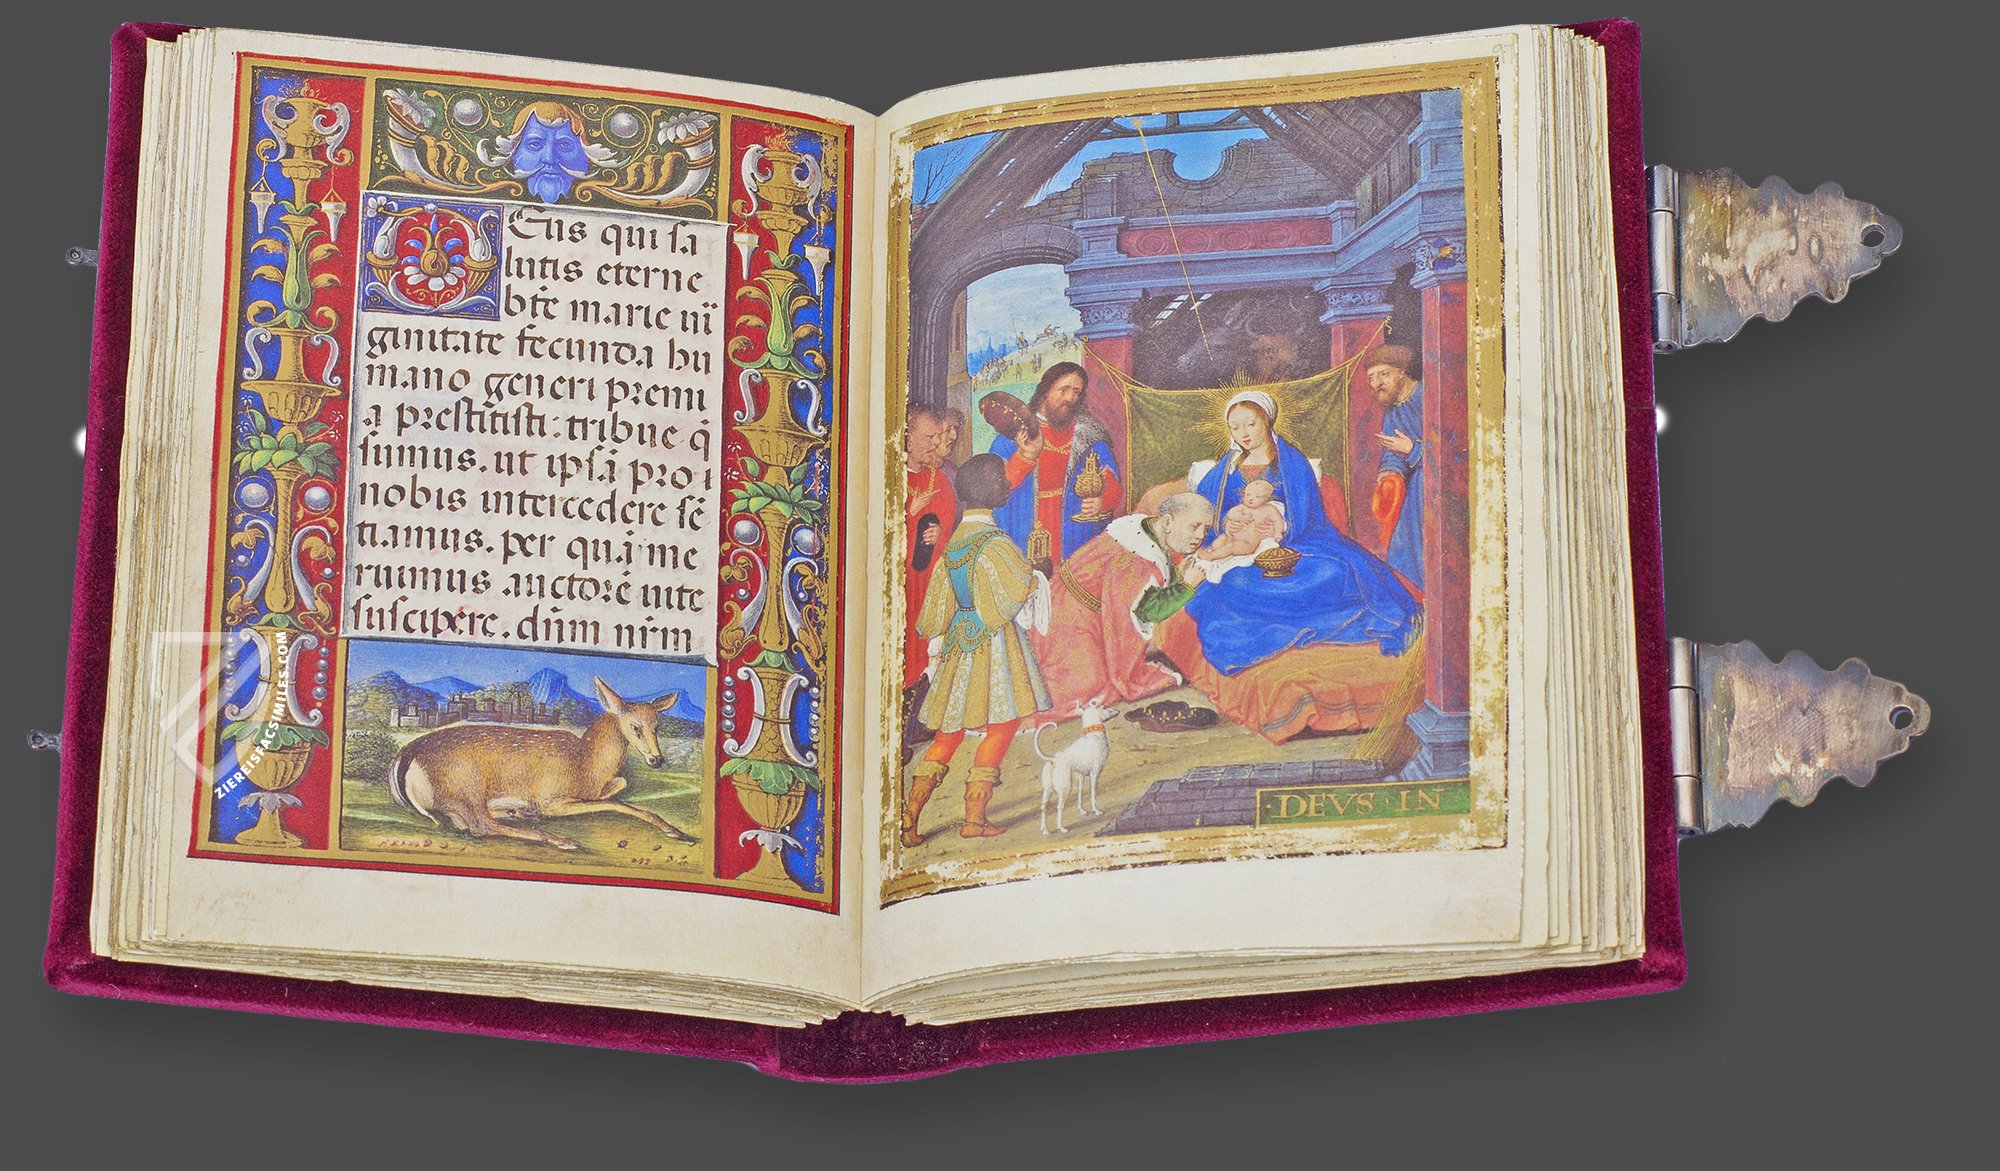 Eus qui sa
lutis eterne
bt̄e marie ui
ginitate fecunda hu
mano generi premi
a prestitisti: tribue q̄
sumus. ut ip̄sā pro
nobis intercedere sē
tiamus. per quā me
ruimus auctorē uite
suscipere. dn̄m nr̄m
·DEVS·IN
ZIEREISFACSIMILES.COM